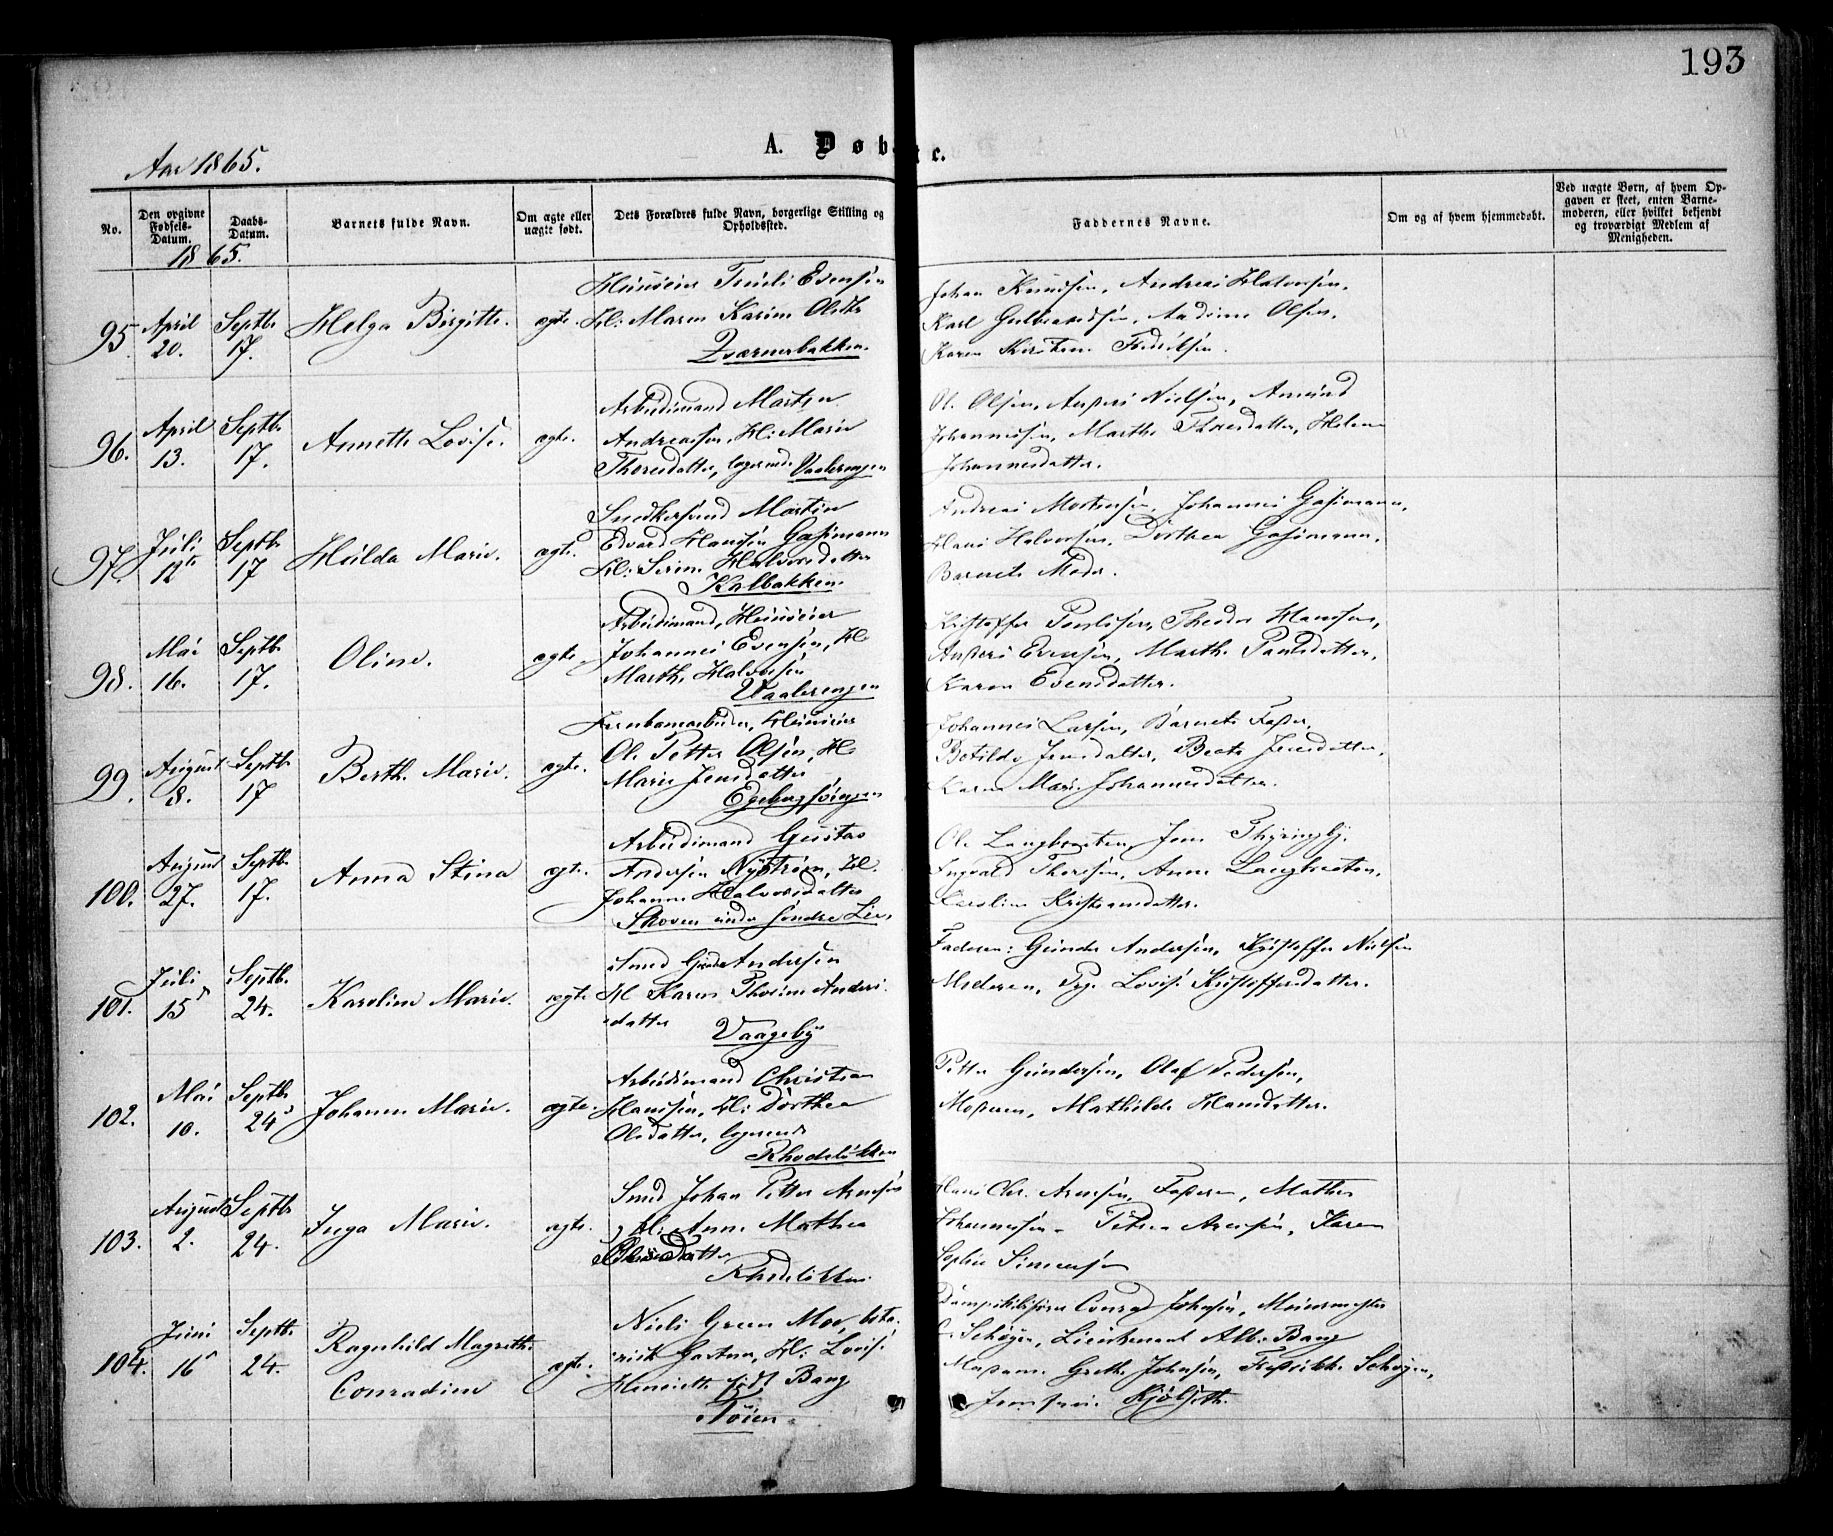 193
Aar 1865.
A. Døbte.
No.
Den opgivne Fødsels-Datum.
Daabs-Datum.
Barnets fulde Navn.
Om ægte eller uægte født.
Dets Forældres fulde Navn, borgerlige Stilling og Opholdssted.
Faddernes Navne.
Om og af hvem hjemmedøbt.
Ved uægte Børn, af hvem Opgaven er skeet, enten Barnemoderen, eller hvilket bekjendt og troværdigt Medlem af Menigheden.
1865.
95. April 20. Septbr 17. Helga Birgitte. ægte.
Huuseier Truls Evensen
H: Maren Karine Olsdtr
Kværnerbakken.
Johan Knudsen, Andreas Halvorsen,
Karl Gulbrandsen, Andine Olsen,
Karen Kirstine Fredriksen.
96. April 13. Septbr 17. Annette Lovise. ægte.
Arbeidsmand Morten
Andreassen, H: Marie
Thoresdatter, logerende Vaalerengen
Ole Olsen, Anders Nielsen, Amund
Johannessen, Marthe Thoresdatter, Helene
Johannesdatter.
97. Juli 12te Septbr 17 Hulda Marie. ægte.
Snedkersvend Martin
Edvard Hansen Gasmann
H: Serine Halvorsdatter
Kalbakken.
Andreas Mortensen, Johannes Gasmann,
Hans Halvorsen, Dorthea Gasmann,
Barnets Moder.
98. Mai 16. Septbr 17. Oline. ægte.
Arbeidsmand, Huuseier
Johannes Evensen, H:
Marthe Halvorsen
Vaalerengen
Kristoffer Poulsen, Theodor Hansen,
Anders Evensen, Marthe Paulsdatter,
Karen Evensdatter.
99. August 8. Septbr 17 Berthe Marie. ægte.
Jernbanearbeider, Huuseier
Ole Petter Olsen, H:
Marie Jensdatter
Egebergsvingen
Johannes Larsen, Barnets Fader,
Botilde Jensdatter, Beate Jensdatter,
Karen Marie Johannesdatter.
100. August 27. Septbr 17. Anna Stina ægte.
Arbeidsmand Gustav
Andersen Nystrøm, H.
Johanne Halvorsdatter
Skoven under søndre Lie.
Ole Langbraaten, Jens
Ingvald Thoresen, Anne Langbraaten,
Karoline Kristiansdatter.
101. Juli 15 Septbr. 24. Karoline Marie. ægte
Smed Gunder Andersen
H Karen Thorine Anders
datter
Vaageby
Faderen: Gunder Andersen, Kristoffer Nielsen
Moderen, Pige Lovise Kristoffersdatter.
102. Mai 10. Septbr 24 Johanne Marie. ægte.
Arbeidsmand Christian
Hansen, H: Dorthea
Olsdatter, logerende
Rhodeløkken
Petter Gundersen, Olaf Pedersen,
Moderen, Mathilde Hansdatter.
103. August 2. Septbr 24. Inga Marie. ægte.
Smed Johan Petter Arnesen
H: Anne Mathea
Rhodeløkken
Hans Chr. Arnesen, Faderen, Mathea
Johannesen, Petrea Arnesen, Karen
Sophie Simensen
104. Juni 16 Septbr. 24. Ragnhild Magrethe Conradine ægte.
Niels Green Moe, bota-
nisk Gartner, H: Lovise
Henriette født Bang
Tøien.
Conrad Johnsen, Muurmester
Schøyen, Lieutenant Alb. Bang
Madame Grethe Johnsen, Fredrikke Schøyen,
Jomfru Kjølseth.